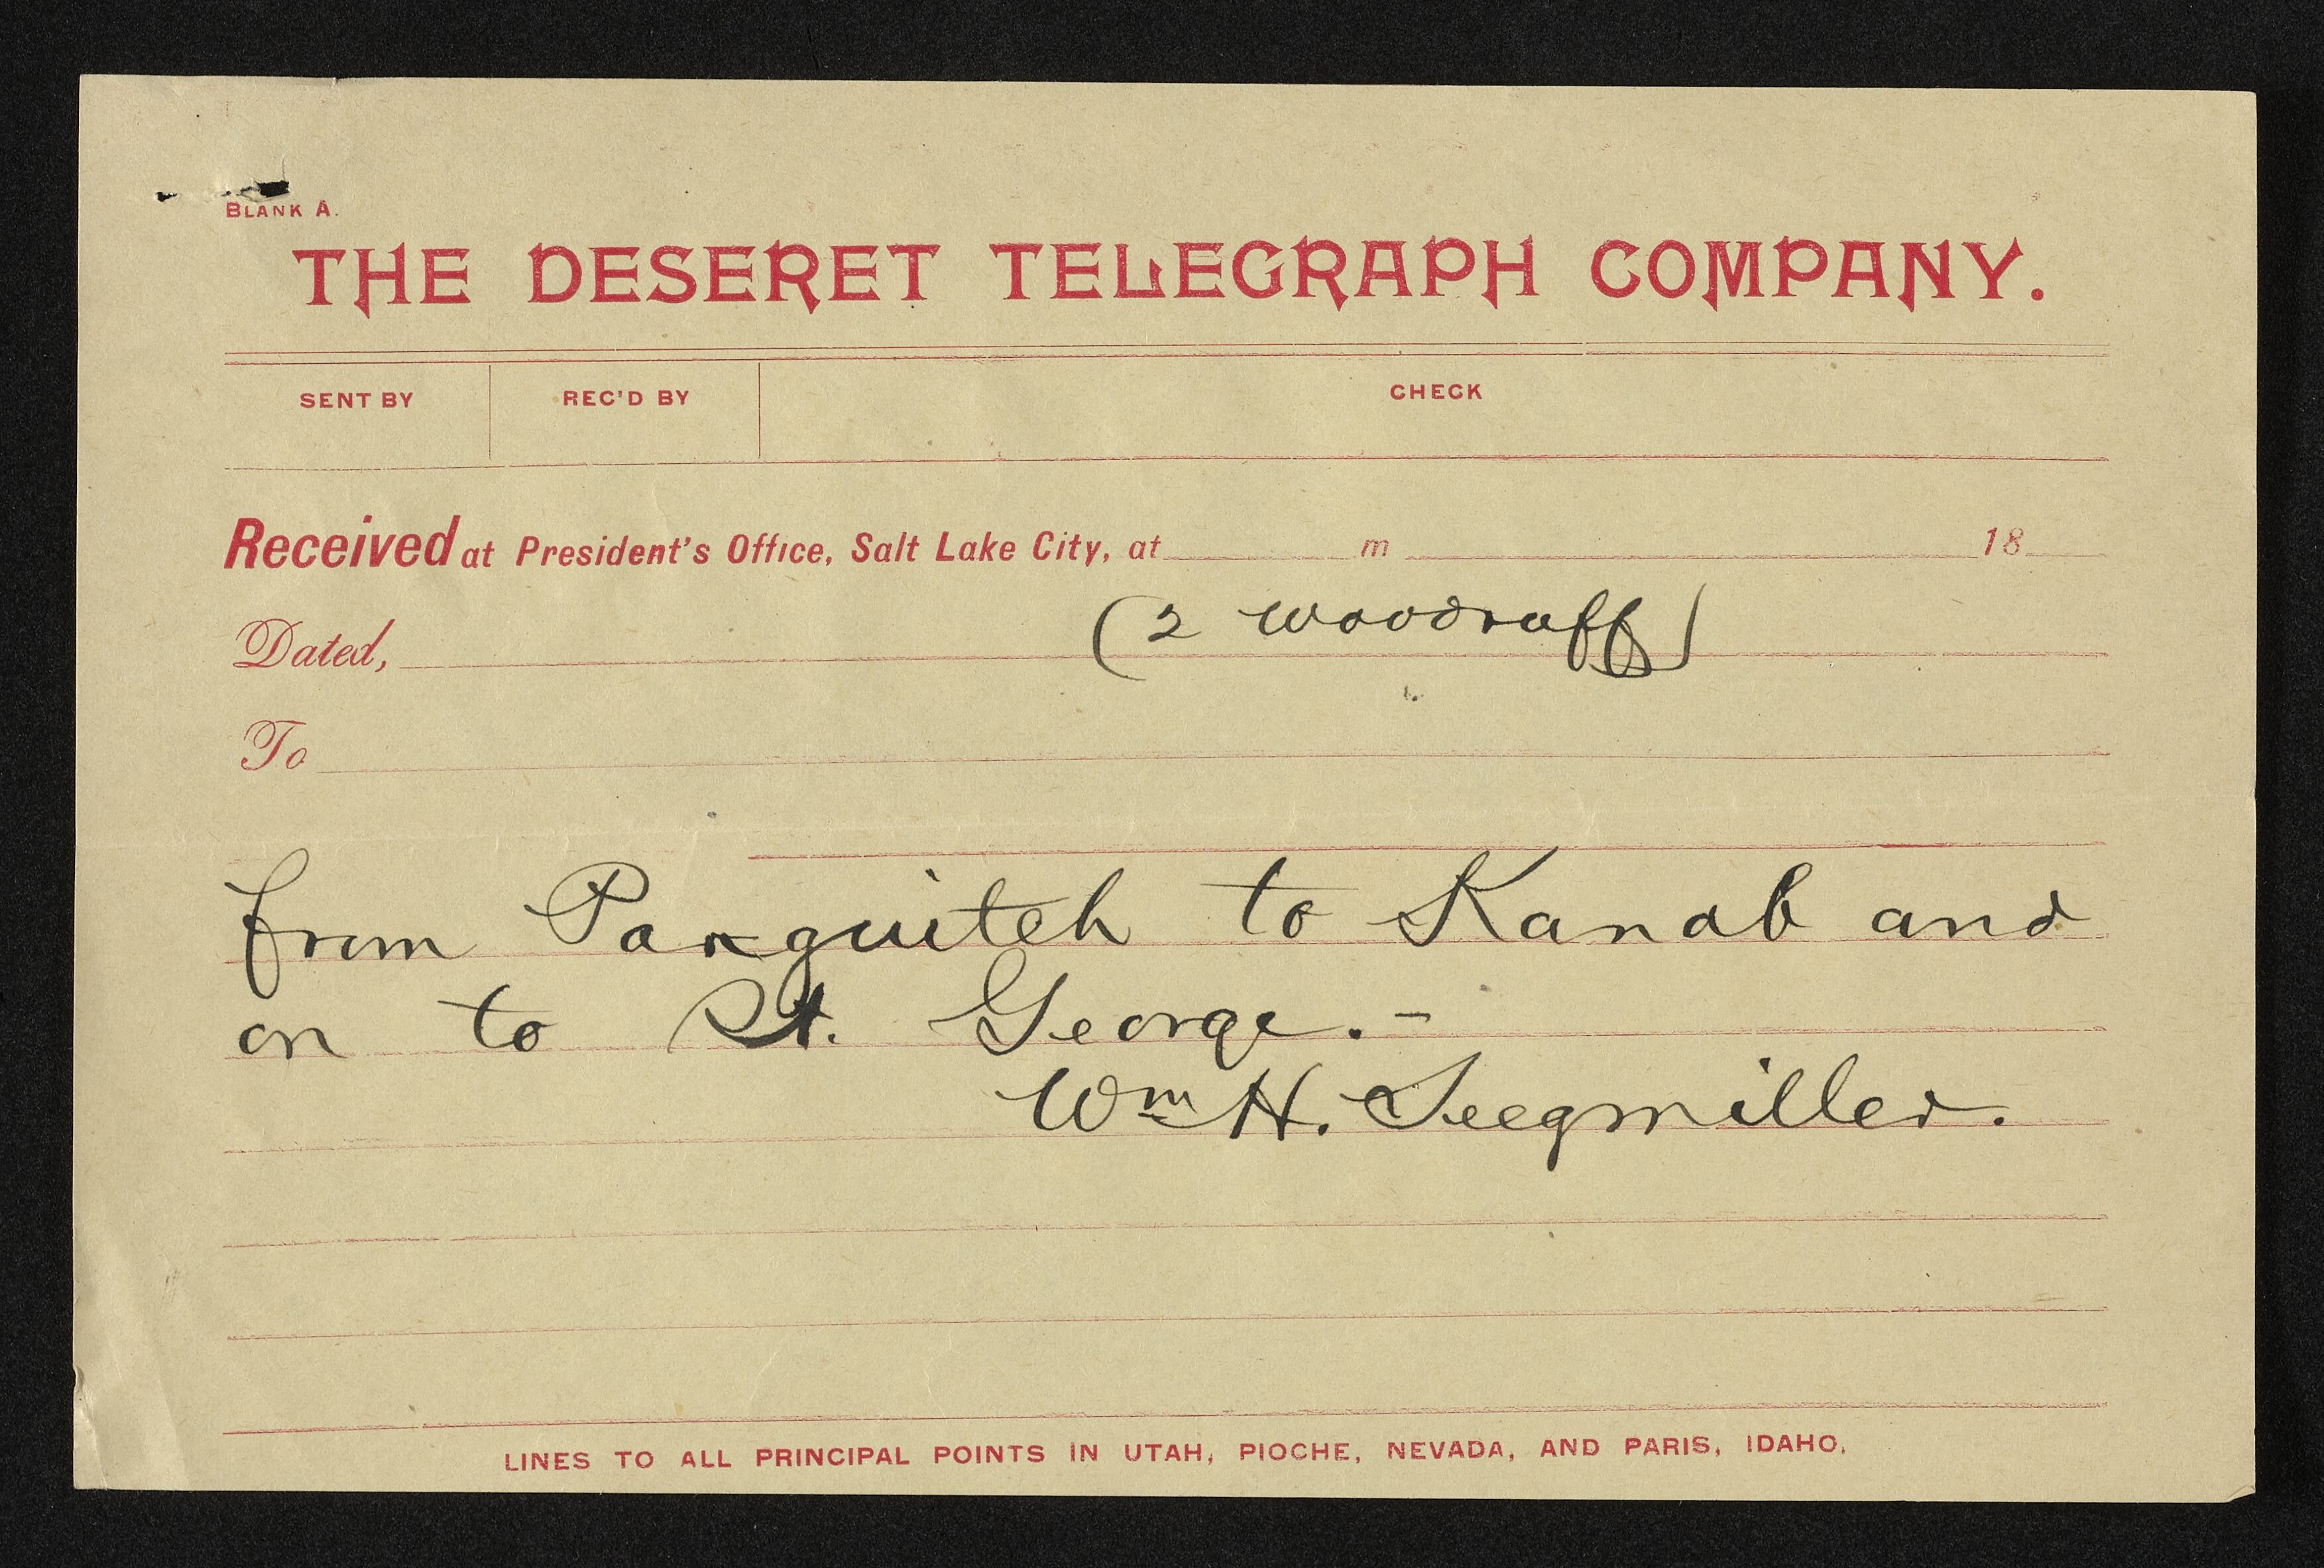 BLANK A.
THE DESERET TELEGRAPH COMPANY.
SENT BY REC'D BY CHECK
Received at President's Office, Salt Lake City, at m 18
Dated, (2 Woodruff)
To
from Panguitch to Kanab and
on to St. George.-
Wm H. Seegmiller.
LINES TO ALL PRINCIPAL POINTS IN UTAH, PIOCHE, NEVADA, AND PARIS, IDAHO.